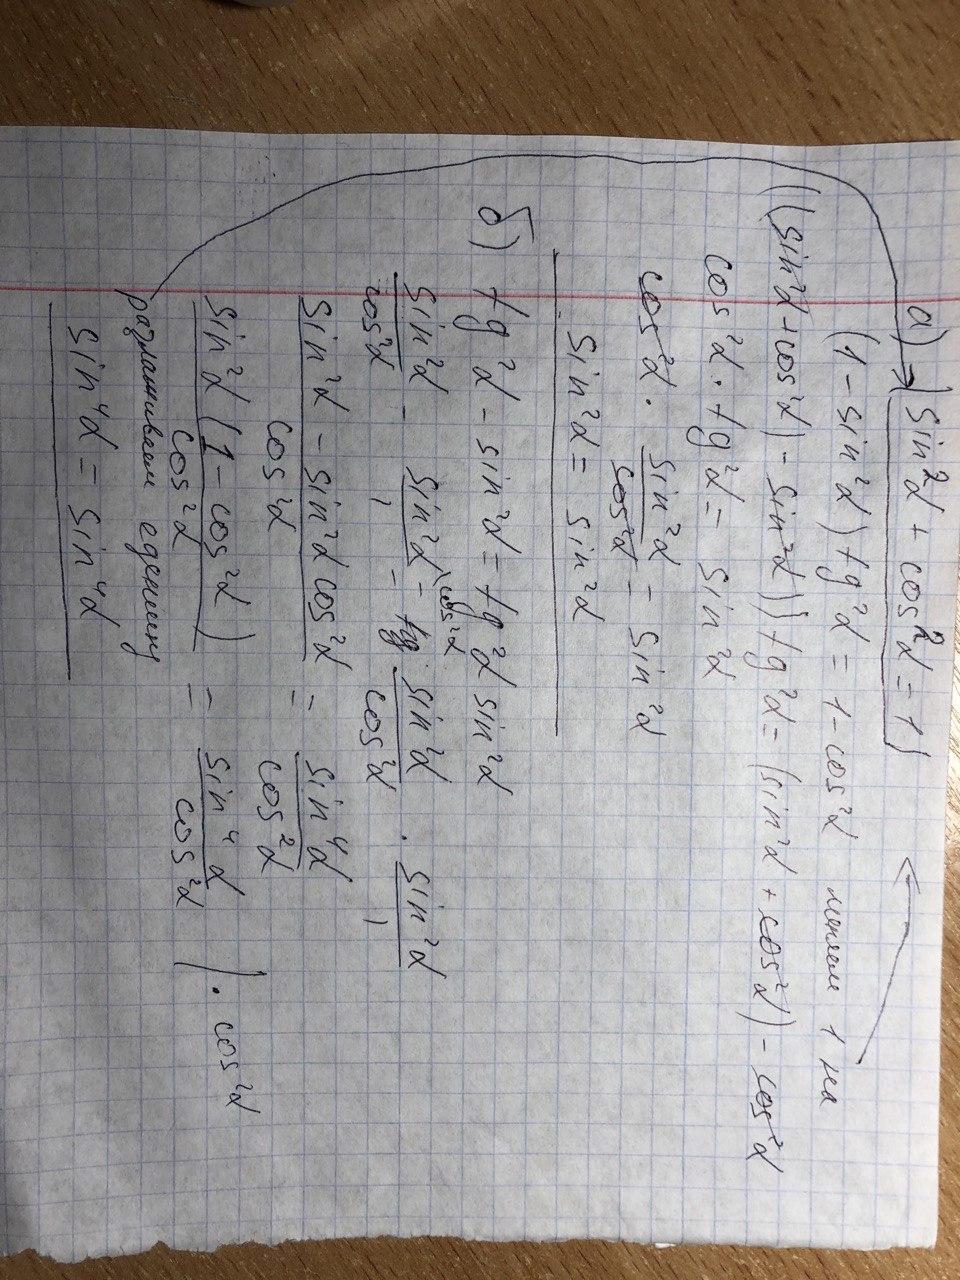 а) sin²α + cos²α = 1
(1 - sin²α) tg²α = 1 - cos²α меняем 1 на
((sin²α + cos²α) - sin²α)) tg²α = (sin²α + cos²α) - cos²α
cos²α · tg²α = sin²α
cos²α · sin²α/cos²α = sin²α
sin²α = sin²α
б) tg²α - sin²α = tg²α sin²α
sin²α/cos²α - sin²α/1 \cos²α = sin²α/cos²α · sin²α/1
sin²α - sin²α cos²α/cos²α = sin⁴α/cos²α
sin²α (1 - cos²α)/cos²α = sin⁴α/cos²α | · cos²α
единицу
sin⁴α = sin⁴α